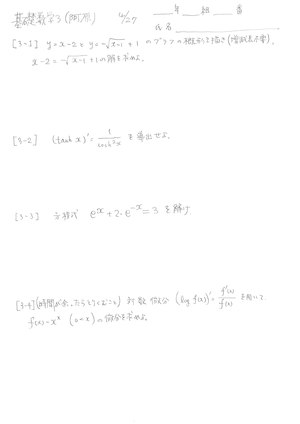 基礎数学3 (関原) 4/27 ___年___組___番
氏名
[3-1] y=x-2 と y=-√(x-1)+1 のグラフの概形を描き(増減表不要)
x-2=-√(x-1)+1 の解を求めよ.
[3-2] (tanh x)'=1/cosh²x を導出せよ.
[3-3] 方程式 e^x+2・e^-x=3 を解け.
[3-4] (時間が余ったらとりくむこと) 対数微分 (log f(x))'=f'(x)/f(x) を用いて
f(x)=x^x (0<x) の微分を求めよ.